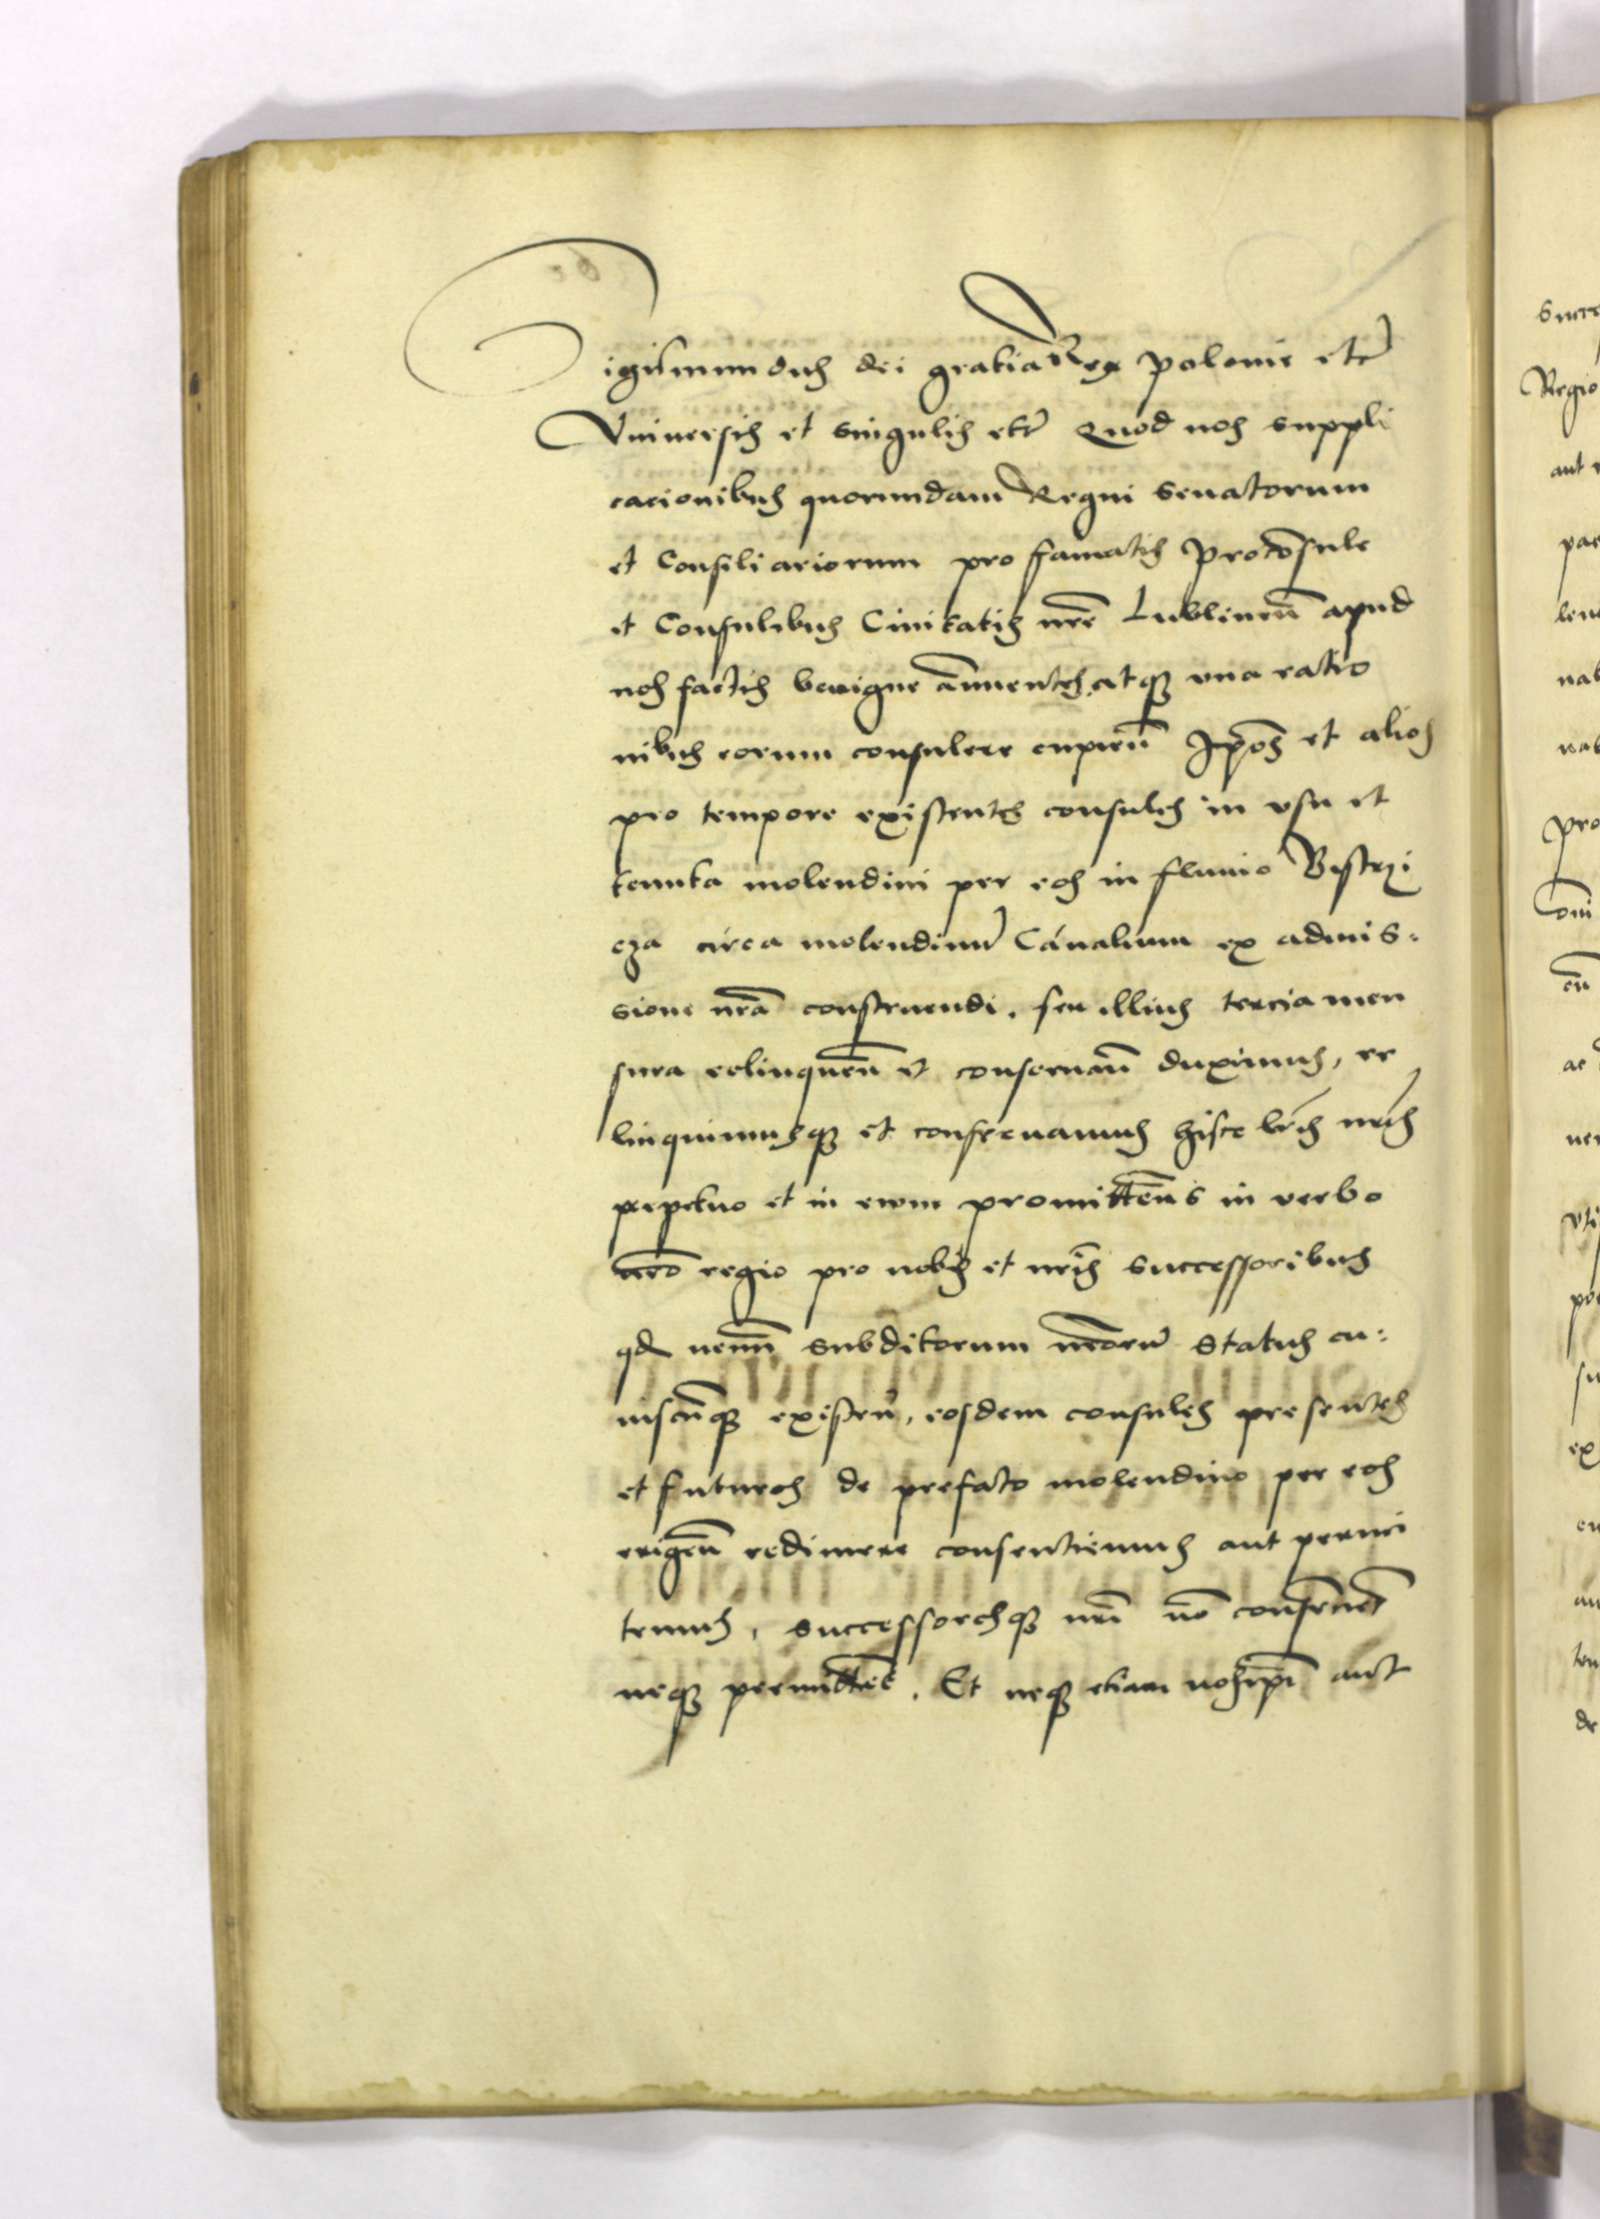 Sigismundus dei gratia Rex polonie etc
Vniuersis et singulis etc Quod nos suppli
cacionibus quorundam Regni senatorum
et Consiliariorum pro famatis proconsule
et Consulibus Ciuitatis nre Lublinen apud
nos factis benigne annuentes atq3 vna ratio
nibus eorum consulere cupien Ipos et alios
pro tempore existentes consules in vsu et
tenuta molendini per eos in fluuio Bistrzi
cza circa molendinu Canalium ex admis:
sione nra construendi. seu illius tercia men
sura relinquen et conseruan duximus, re
linquimusq3 et conseruamus hisce lris nris
perpetuo et in ewm promitten s in verbo
nro regio pro nobis et nris successoribus
qd nemini subditorum nroru status cu:
iuscunq3 existen, eosdem consules presentes
et futuros de prefato molendino per eos
erigen redimere consentiemus aut permi
temus, successoresq3 nri no consencient
neq3 permittent. Et neq3 etiam nos ipi aut
succe
Regio
aut
pro
ac
vti
ex
de